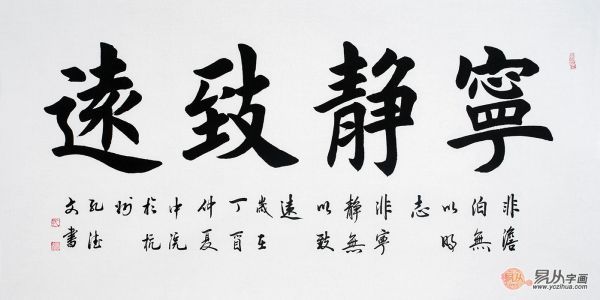 寧静致遠
非澹
泊無
以明
志
非寧
静無
以致
遠
歲在
丁酉
仲夏
中浣
於杭
州
孔德
文書
易从字画
www.yczihua.com